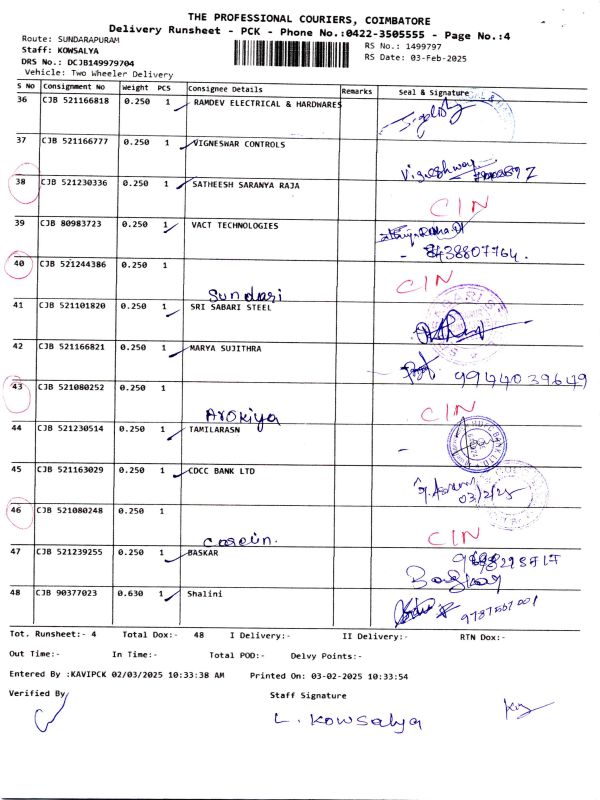 THE PROFESSIONAL COURIERS, COIMBATORE
Delivery Runsheet - PCK - Phone No.:0422-3505555 - Page No.:4
Route: SUNDARAPURAM
RS No.: 1499797
Staff: KOWSALYA
RS Date: 03-Feb-2025
DRS No.: DCJB149979704
Vehicle: Two Wheeler Delivery
S No Consignment No Weight PCS Consignee Details Remarks Seal & Signature
36 CJB 521166818 0.250 1 RAMDEV ELECTRICAL & HARDWARES
37 CJB 521166777 0.250 1 VIGNESWAR CONTROLS
Vigneshwar
38 CJB 521230336 0.250 1 SATHEESH SARANYA RAJA
CIN
39 CJB 80983723 0.250 1 VACT TECHNOLOGIES
8438807764.
40 CJB 521244386 0.250 1
Sundari
CIN
41 CJB 521101820 0.250 1 SRI SABARI STEEL
42 CJB 521166821 0.250 1 MARYA SUJITHRA
9944039649
43 CJB 521080252 0.250 1
Arokiya
CIN
44 CJB 521230514 0.250 1 TAMILARASN
45 CJB 521163029 0.250 1 CDCC BANK LTD
03/2/25
46 CJB 521080248 0.250 1
CIN
47 CJB 521239255 0.250 1 BASKAR
48 CJB 90377023 0.630 1 Shalini
Tot. Runsheet:- 4 Total Dox:- 48 I Delivery:- II Delivery:- RTN Dox:-
Out Time:- In Time:- Total POD:- Delvy Points:-
Entered By :KAVIPCK 02/03/2025 10:33:38 AM Printed On: 03-02-2025 10:33:54
Verified By Staff Signature
L. Kowsalya